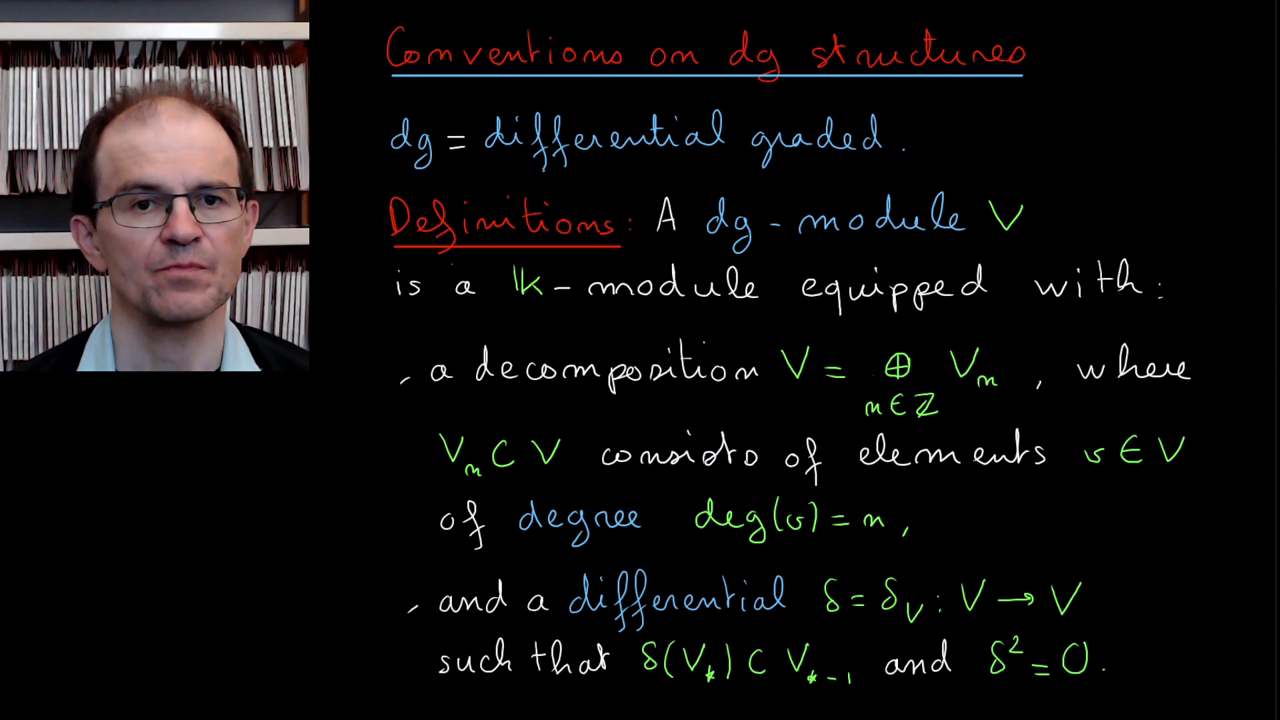 Conventions on dg structures
dg = differential graded.
Definitions: A dg-module V
is a 𝕜-module equipped with:
- a decomposition V = ⊕ Vₙ, where
n∈ℤ
Vₙ ⊂ V consists of elements v ∈ V
of degree deg(v) = n,
- and a differential δ = δ_V : V → V
such that δ(V_*) ⊂ V_{*-1} and δ² = 0.